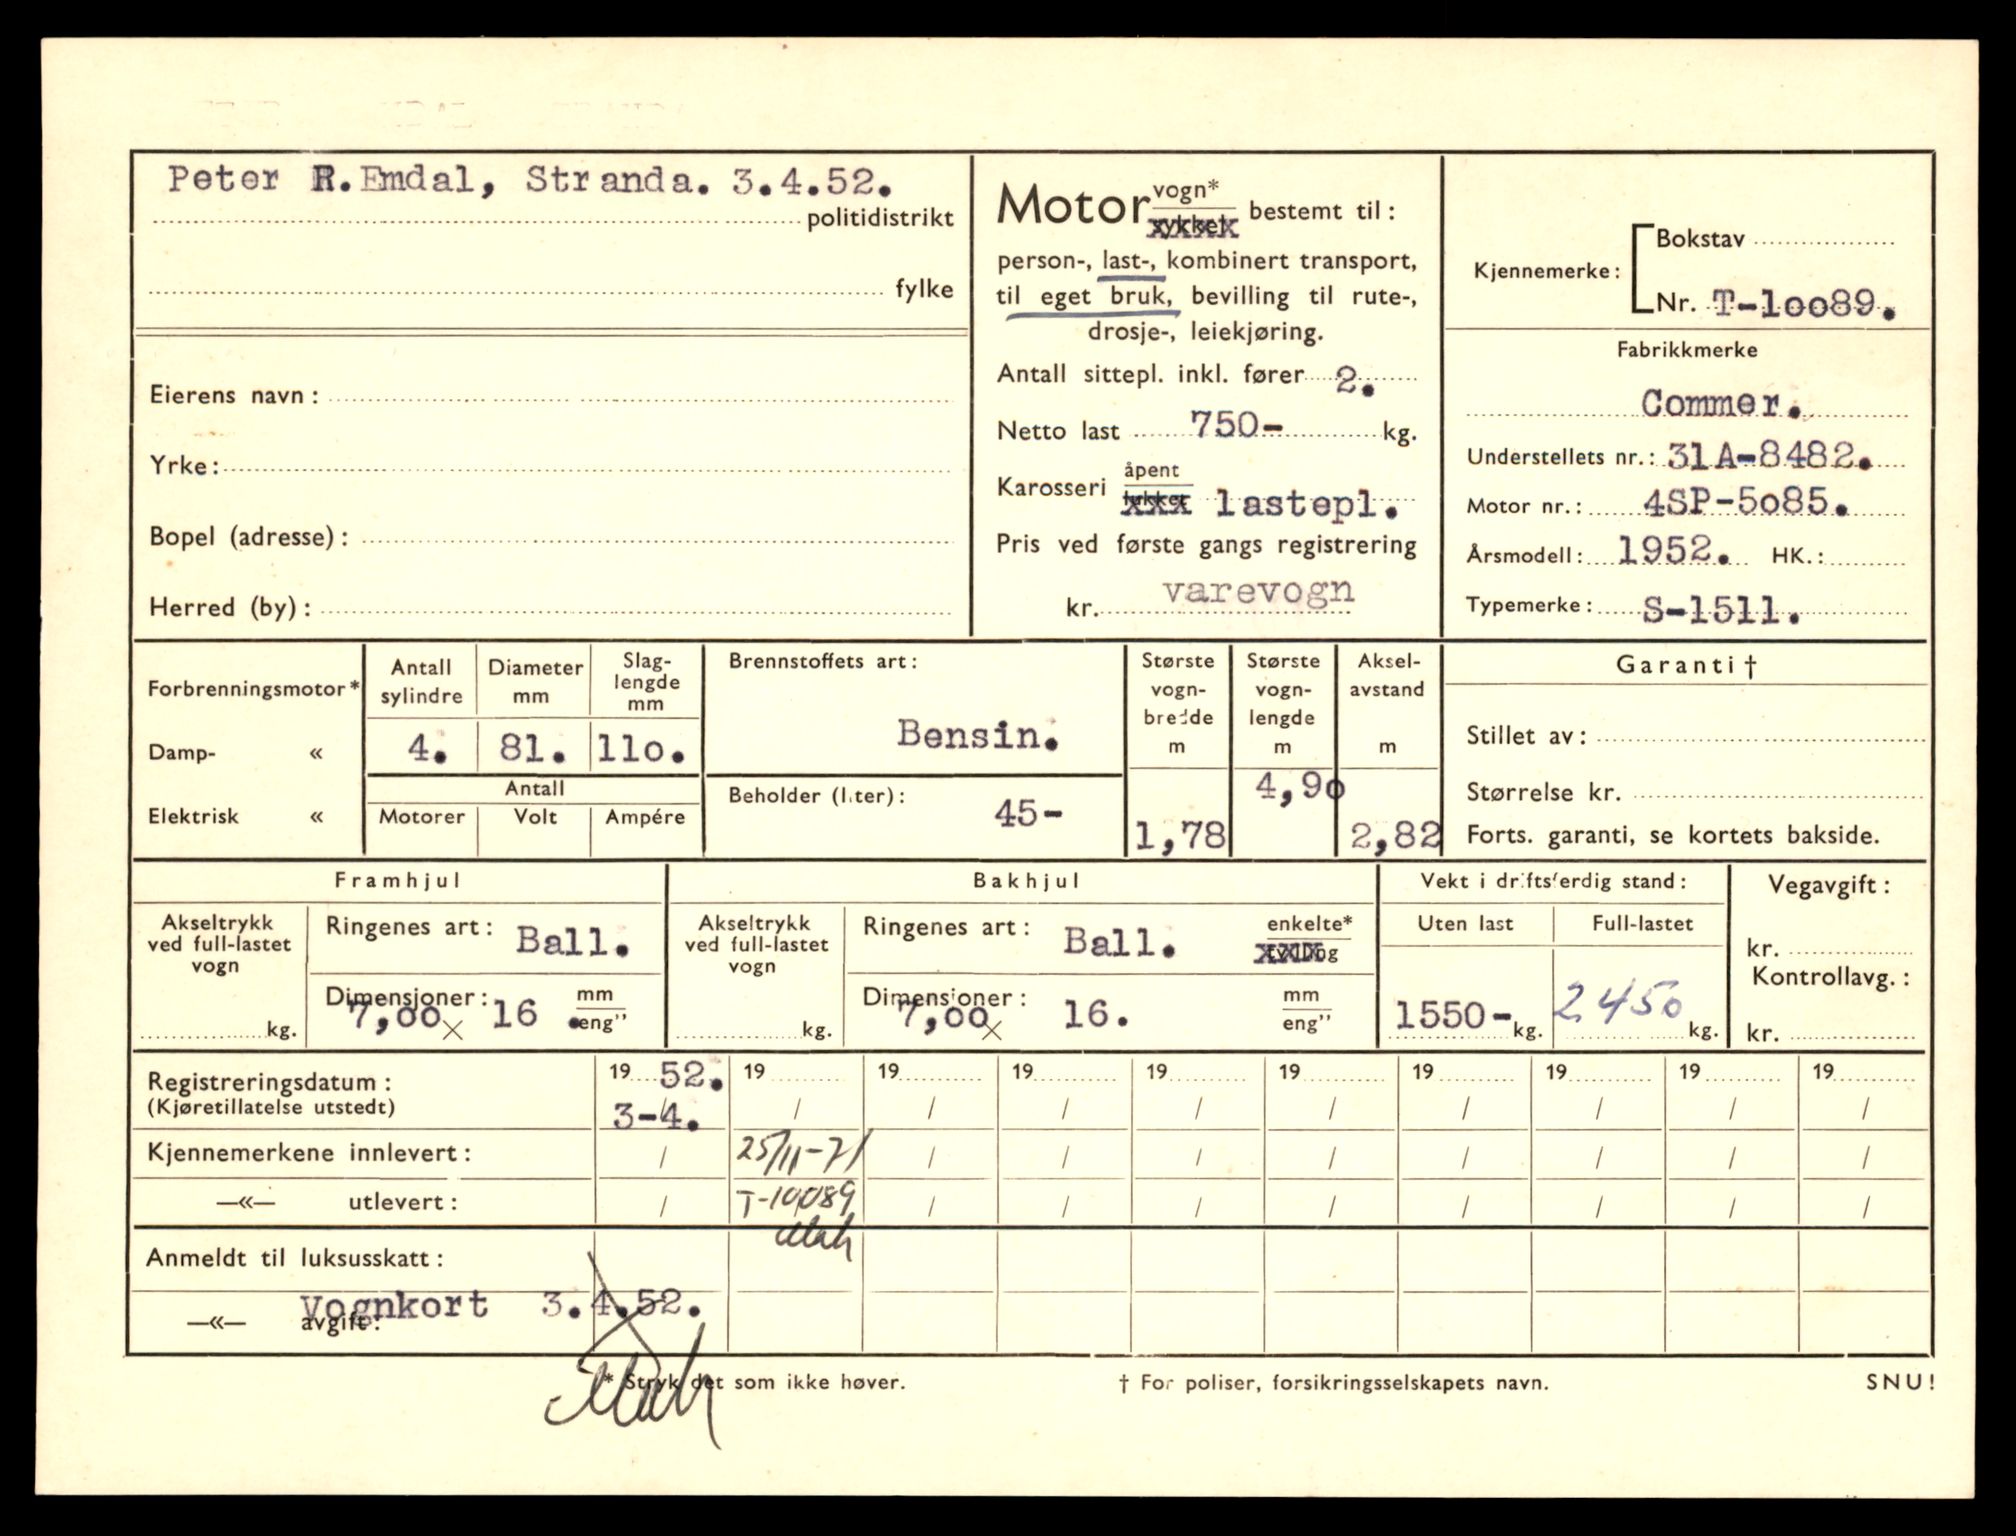 Peter R.Emdal, Stranda. 3.4.52.
politidistrikt
fylke
Eierens navn:
Yrke:
Bopel (adresse):
Herred (by):
Motor vogn*
sykkel bestemt til:
person-, last-, kombinert transport,
til eget bruk, bevilling til rute-,
drosje-, leiekjøring.
Antall sittepl. inkl. fører 2.
Netto last 750- kg.
Karosseri åpent
lukket lastepl.
Pris ved første gangs registrering
kr. varevogn
Kjennemerke: Bokstav
Nr. T-10089.
Fabrikkmerke
Commer.
Understellets nr.: 31A-8482.
Motor nr.: 4SP-5085.
Årsmodell: 1952. HK.:
Typemerke: S-1511.
Forbrenningsmotor*
Damp- «
Elektrisk «
Antall sylindre
Diameter mm
Slag-
lengde
mm
4. 81. 110.
Antall
Motorer Volt Ampére
Brennstoffets art:
Bensin.
Beholder (liter):
45-
Største
vogn-
bredde
m
1,78
Største
vogn-
lengde
m
4,90
Aksel-
avstand
m
2,82
Garanti †
Stillet av:
Størrelse kr.
Forts. garanti, se kortets bakside.
Framhjul
Akseltrykk
ved full-lastet
vogn
kg.
Ringenes art: Ball.
Dimensjoner: mm
7,00 × 16 . eng”
Bakhjul
Akseltrykk
ved full-lastet
vogn
kg.
Ringenes art: Ball. enkelte*
tvilling
Dimensjoner: mm
7,00 × 16. eng”
Vekt i driftsferdig stand:
Uten last Full-lastet
1550- kg. 2450 kg.
Vegavgift:
kr.
Kontrollavg.:
kr.
Registreringsdatum: 19 52. 19 19 19 19 19 19 19 19 19
(Kjøretillatelse utstedt) 3-4. / / / / / / / / /
Kjennemerkene innlevert: / 25/11-71 / / / / / / / /
—«— utlevert: / T-10089 / / / / / / / /
Anmeldt til luksusskatt:
Vognkort 3.4.52.
—«— avgift:
* Stryk det som ikke høver.
† For poliser, forsikringsselskapets navn.
SNU!